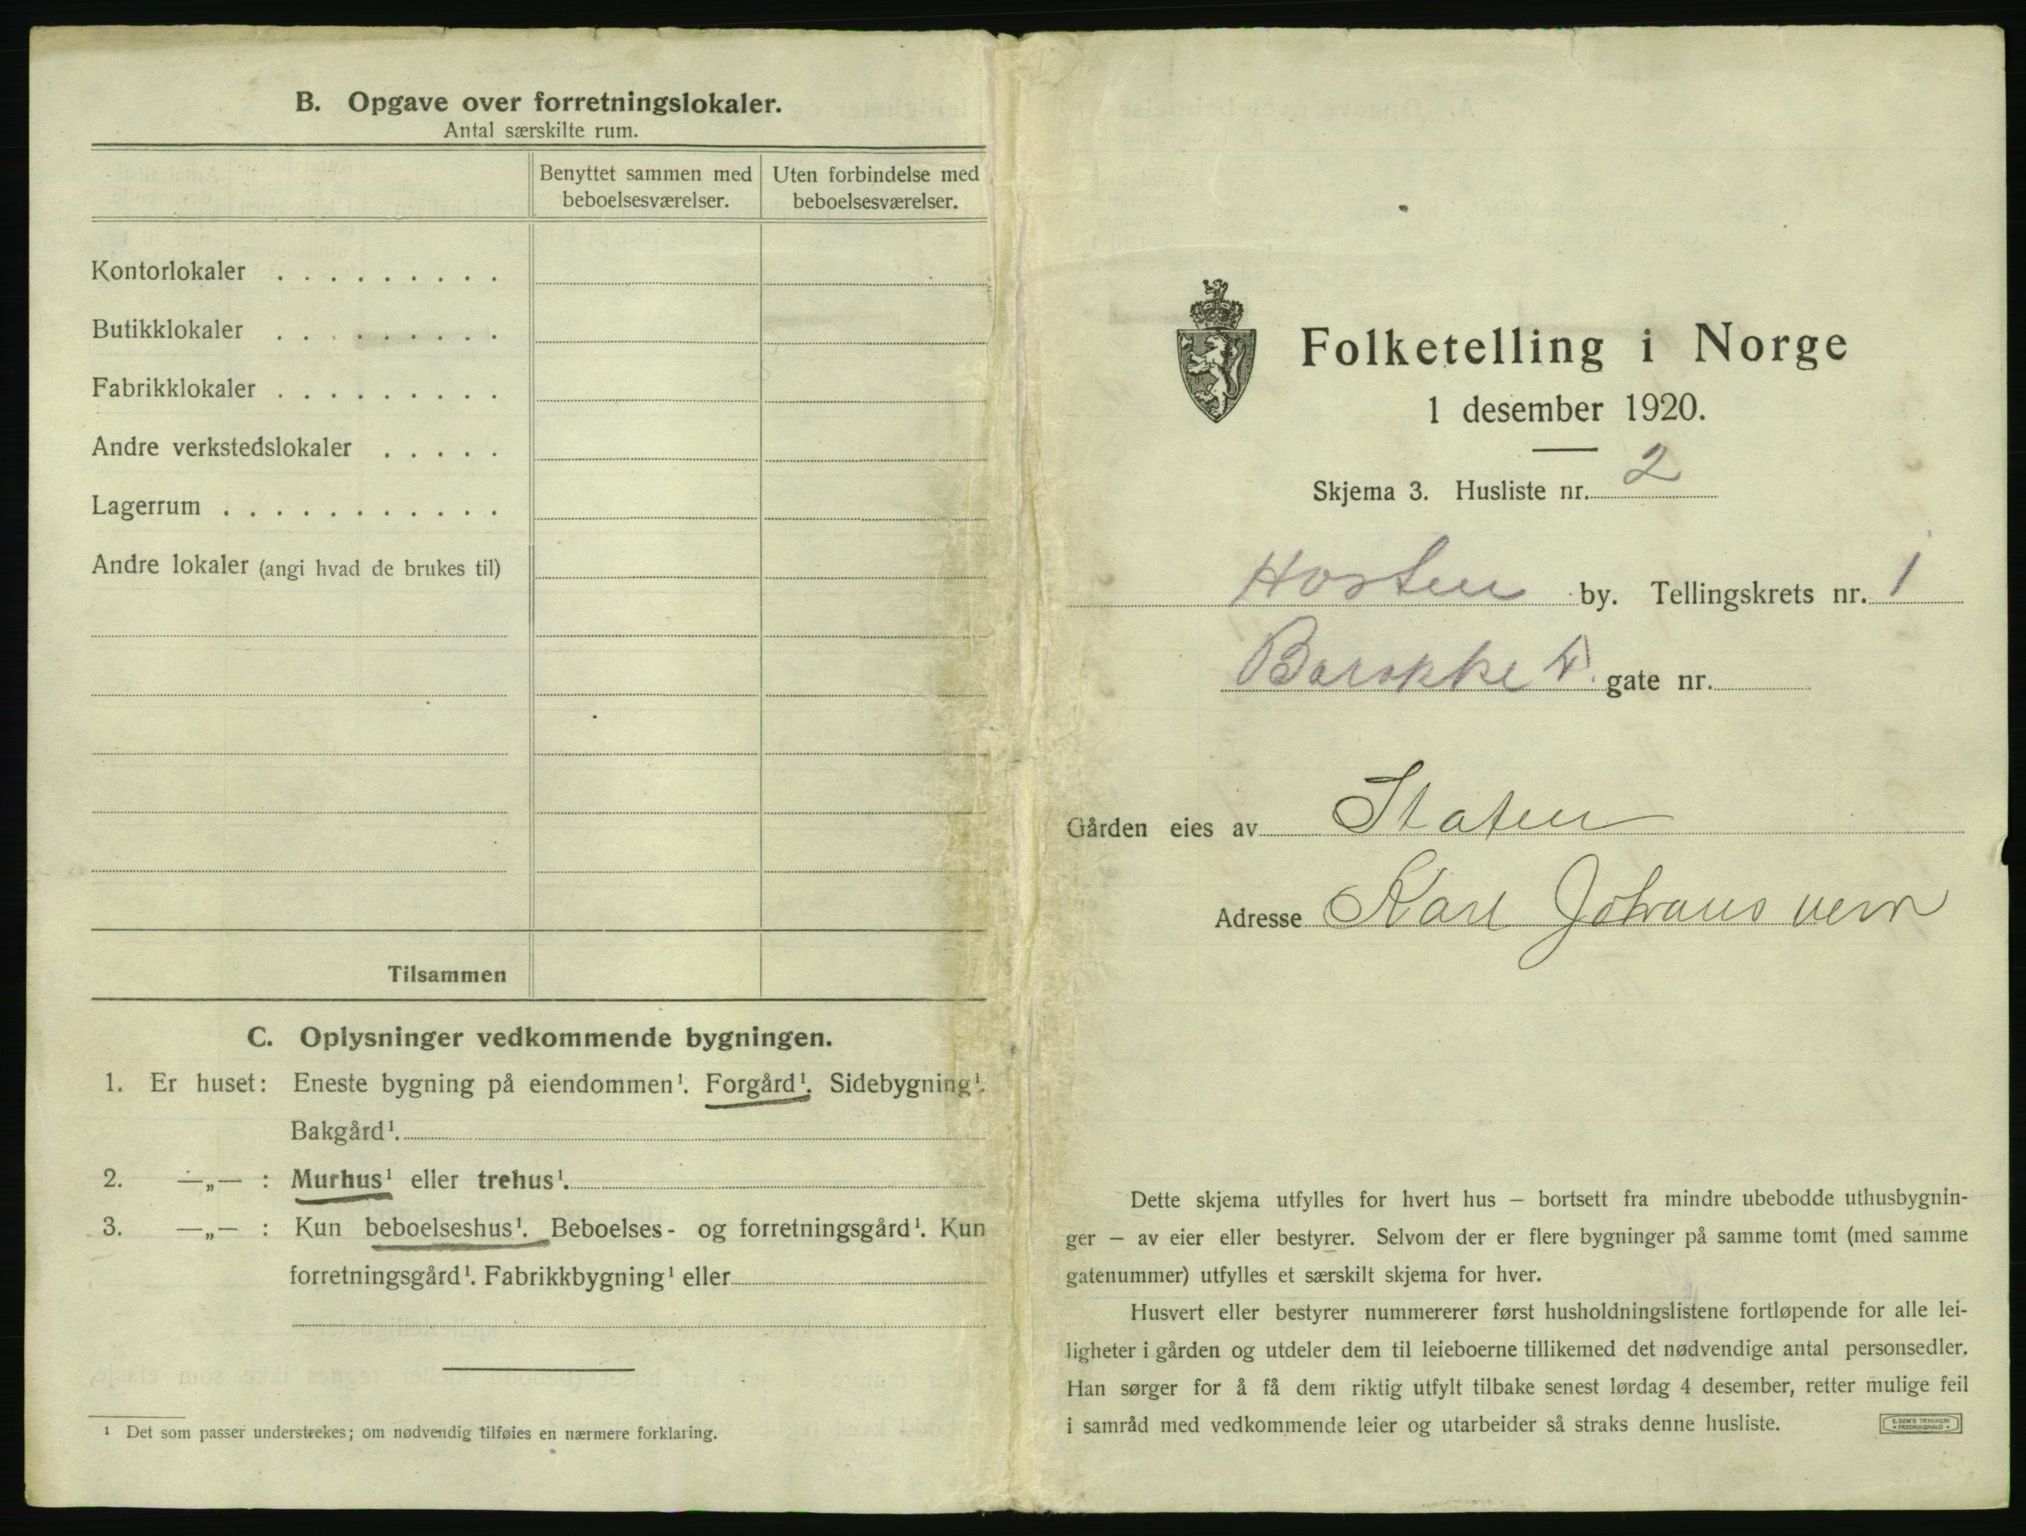 B. Opgave over forretningslokaler.
Antal særskilte rum.
Benyttet sammen med beboelsesværelser.
Uten forbindelse med beboelsesværelser.
Kontorlokaler . . . . . . . . .
Butikklokaler . . . . . . . . .
Fabrikklokaler . . . . . . . . .
Andre verkstedslokaler . . . . .
Lagerrum . . . . . . . . . . .
Andre lokaler (angi hvad de brukes til)
Tilsammen
C. Oplysninger vedkommende bygningen.
1. Er huset: Eneste bygning på eiendommen¹. Forgård¹. Sidebygning¹.
Bakgård¹.
2. —„— : Murhus¹ eller trehus¹.
3. —„— : Kun beboelseshus¹. Beboelses- og forretningsgård¹. Kun
forretningsgård¹. Fabrikkbygning¹ eller
¹ Det som passer understrekes; om nødvendig tilføies en nærmere forklaring.
Folketelling i Norge
1 desember 1920.
Skjema 3. Husliste nr. 2
Horten by. Tellingskrets nr. 1
Barakke gate nr.
Gården eies av Staten
Adresse Karl Johans vern
Dette skjema utfylles for hvert hus — bortsett fra mindre ubebodde uthusbygnin-
ger — av eier eller bestyrer. Selvom der er flere bygninger på samme tomt (med samme
gatenummer) utfylles et særskilt skjema for hver.
Husvert eller bestyrer nummererer først husholdningslistene fortløpende for alle lei-
ligheter i gården og utdeler dem til leieboerne tillikemed det nødvendige antal personsedler.
Han sørger for å få dem riktig utfylt tilbake senest lørdag 4 desember, retter mulige feil
i samråd med vedkommende leier og utarbeider så straks denne husliste.
E. SEM'S TRYKKERI
FREDRIKSHALD